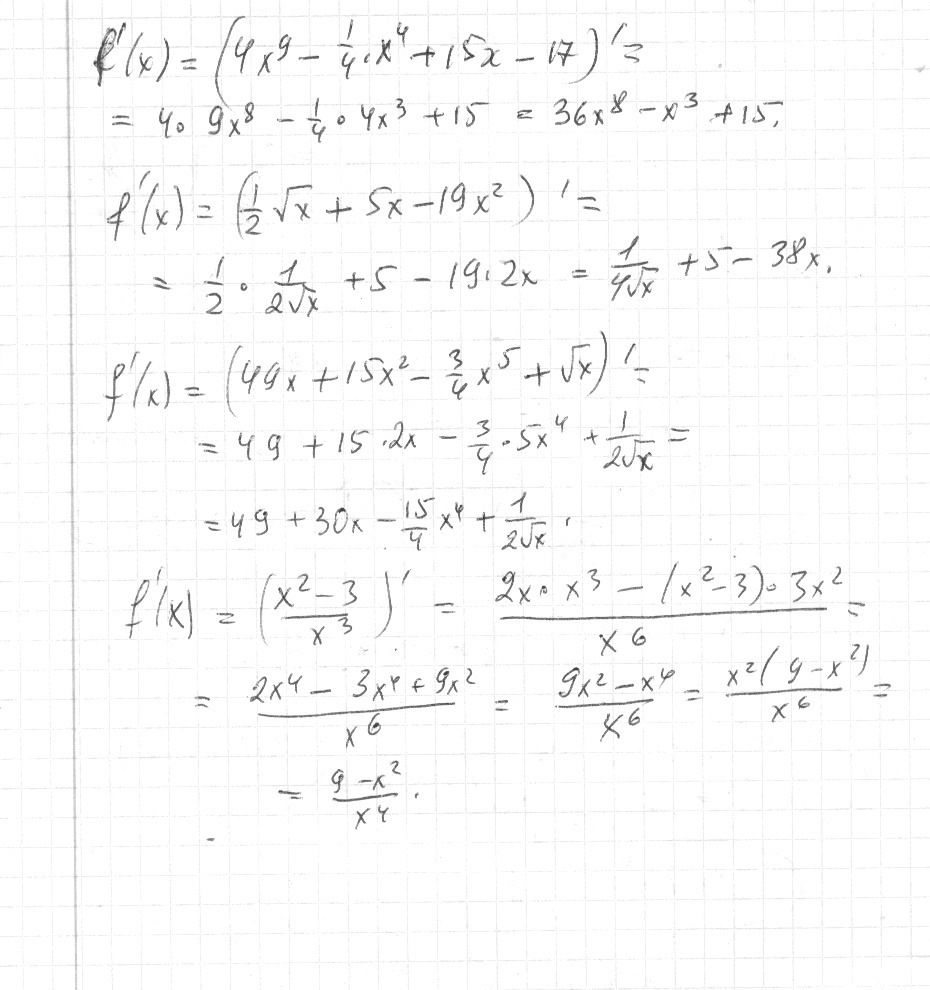 f'(x) = (4x⁹ - 1/4 · x⁴ + 15x - 17)' =
= 4 · 9x⁸ - 1/4 · 4x³ + 15 = 36x⁸ - x³ + 15.
f'(x) = (1/2 √x + 5x - 19x²)' =
= 1/2 · 1/(2√x) + 5 - 19 · 2x = 1/(4√x) + 5 - 38x.
f'(x) = (49x + 15x² - 3/4 x⁵ + √x)' =
= 49 + 15 · 2x - 3/4 · 5x⁴ + 1/(2√x) =
= 49 + 30x - 15/4 x⁴ + 1/(2√x).
f'(x) = ((x² - 3)/x³)' = (2x · x³ - (x² - 3) · 3x²)/x⁶ =
= (2x⁴ - 3x⁴ + 9x²)/x⁶ = (9x² - x⁴)/x⁶ = x²(9 - x²)/x⁶ =
= (9 - x²)/x⁴.